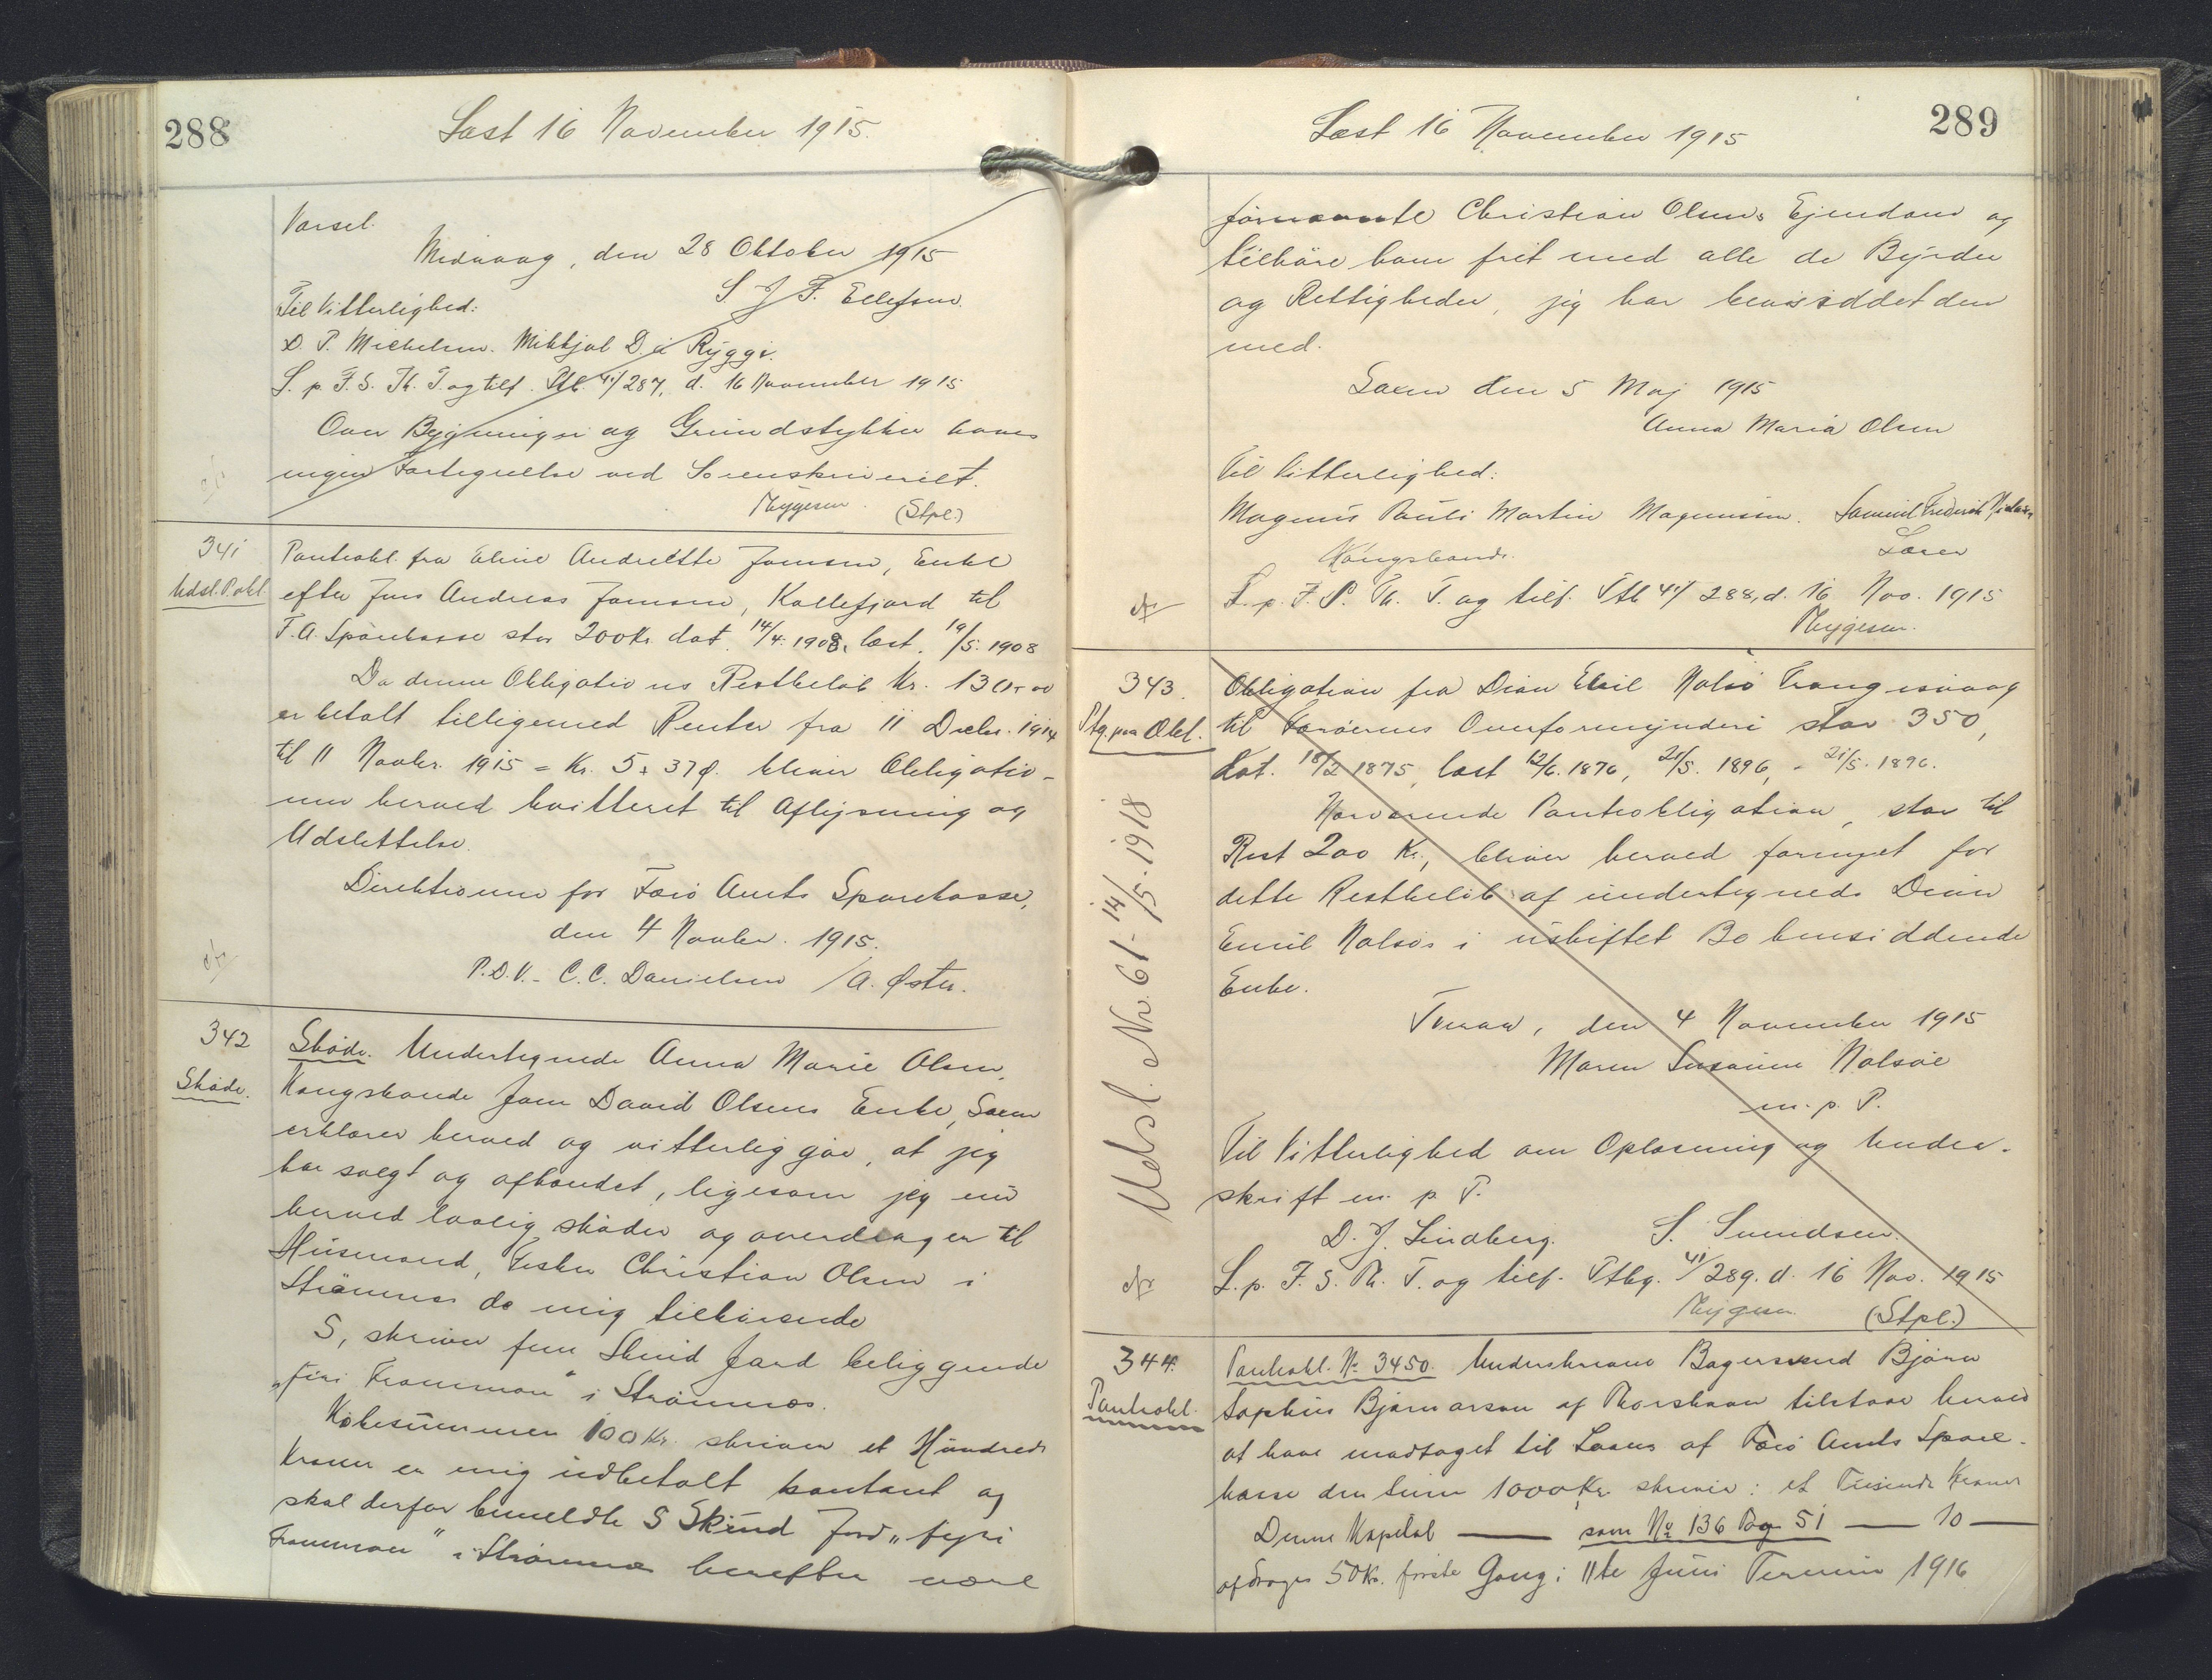 288
Læst 16 November 1915.
Varsel.
Midvaag, den 28 Oktober 1915
Til Vitterlighed: S J F. Ellefsen.
D. P. Michelsen. Mikkjal D. á Ryggi.
L. p. F. S. Th. T. og tilf. Ptb. 41/287, d. 16 November 1915
Over Bygninger og Grundstykker haves
ingen Fortegnelse ved Sorenskriveriet.
Thygesen. (Stpl.)
341 Pantobl. fra Eline Andrelitte Joensen, Enke
Udsl. P. obl. efter Jens Andreas Joensen, Kollefjord til
F. A. Sparekasse stor 200 Kr. dat. 14/4. 1908, læst. 19/5. 1908
Da denne Obligations Restbeløb Kr. 130,00
er betalt tilligemed Renter fra 11 Decbr. 1914
til 11 Novbr. 1915 = Kr. 5,37 Ø. bliver Obligatio-
nen herved kvitteret til Aflysning og
Udslettelse.
Direktionen for Færø Amts Sparekasse,
den 4 Novbr. 1915.
P.D.V. - C. C. Danielsen / A. Øster.
342 Skøde. Undertegnede Anna Marie Olsen,
Skøde. Kongsbonde Joen David Olsens Enke, Saxen
erklærer herved og vitterliggør, at jeg
har solgt og afhændet, ligesom jeg nu
herved lovlig skøder og overdrager til
Husmand, Fisker Christian Olsen i
Strømnæs de mig tilhørende
5, skriver fem Skind Jord beliggende
„firi Framman" i Strømnæs.
Købesummen 100 Kr. skriver et Hundrede
Kroner er mig udbetalt kontant og
skal derfor bemeldte 5 Skind Jord „fyri
Framman" i Strømnæs herefter være
289
Læst 16 November 1915
førnævnte Christian Olsens Ejendom og
tilhøre ham frit med alle de Byrder
og Rettigheder, jeg har besiddet den
med.
Saxen den 5 Maj 1915
Anna Maria Olsen
Til Vitterlighed:
Magnus Pauli Martin Magnussen. Samuel Frederik
Kongsbonde. Saxen
L. p. F. S. Th. T. og tilf. Ptb 41/288, d. 16 Nov. 1915
Thygesen.
343. Obligation fra Dion Emil Nolsø Trangisvaag
Ptg. paa Obl. til Færøernes Overformynderi stor 350,
dat. 18/2 1875, læst 12/6. 1876, 21/5. 1896, - 21/5. 1896.
Nærværende Pantobligation, stor til
Rest 200 Kr., bliver herved fornyet for
dette Restbeløb af undertegnede Dion
Emil Nolsøs i uskiftet Bo hensiddende
Enke.
Tveraa, den 4 November 1915
Maren Susanne Nolsøe
m. p. P.
Til Vitterlighed om Oplæsning og Under-
skrift m. p. P.
D. J. Lindberg. S. Sumdsen.
L. p. F. S. Th. T. og tilf. Ptbg. 41/289. d. 16 Nov. 1915
Thygesen (Stpl.)
Udsl. Nr. 61 - 14/5. 1918
344. Pantobl. No 3450. Underskrevne Bagersvend Bjørn
Pantobl. Sophus Bjørnarson af Thorshavn tilstaar herved
at have modtaget til Laans af Færø Amts Spare-
kasse den Sum 1000 Kr. skriver: et Tusinde Kroner
Denne Kapital — som No 136 Pag 51 — 10 —
afdrages 50 Kr. første Gang i 11te Juni Termin 1916